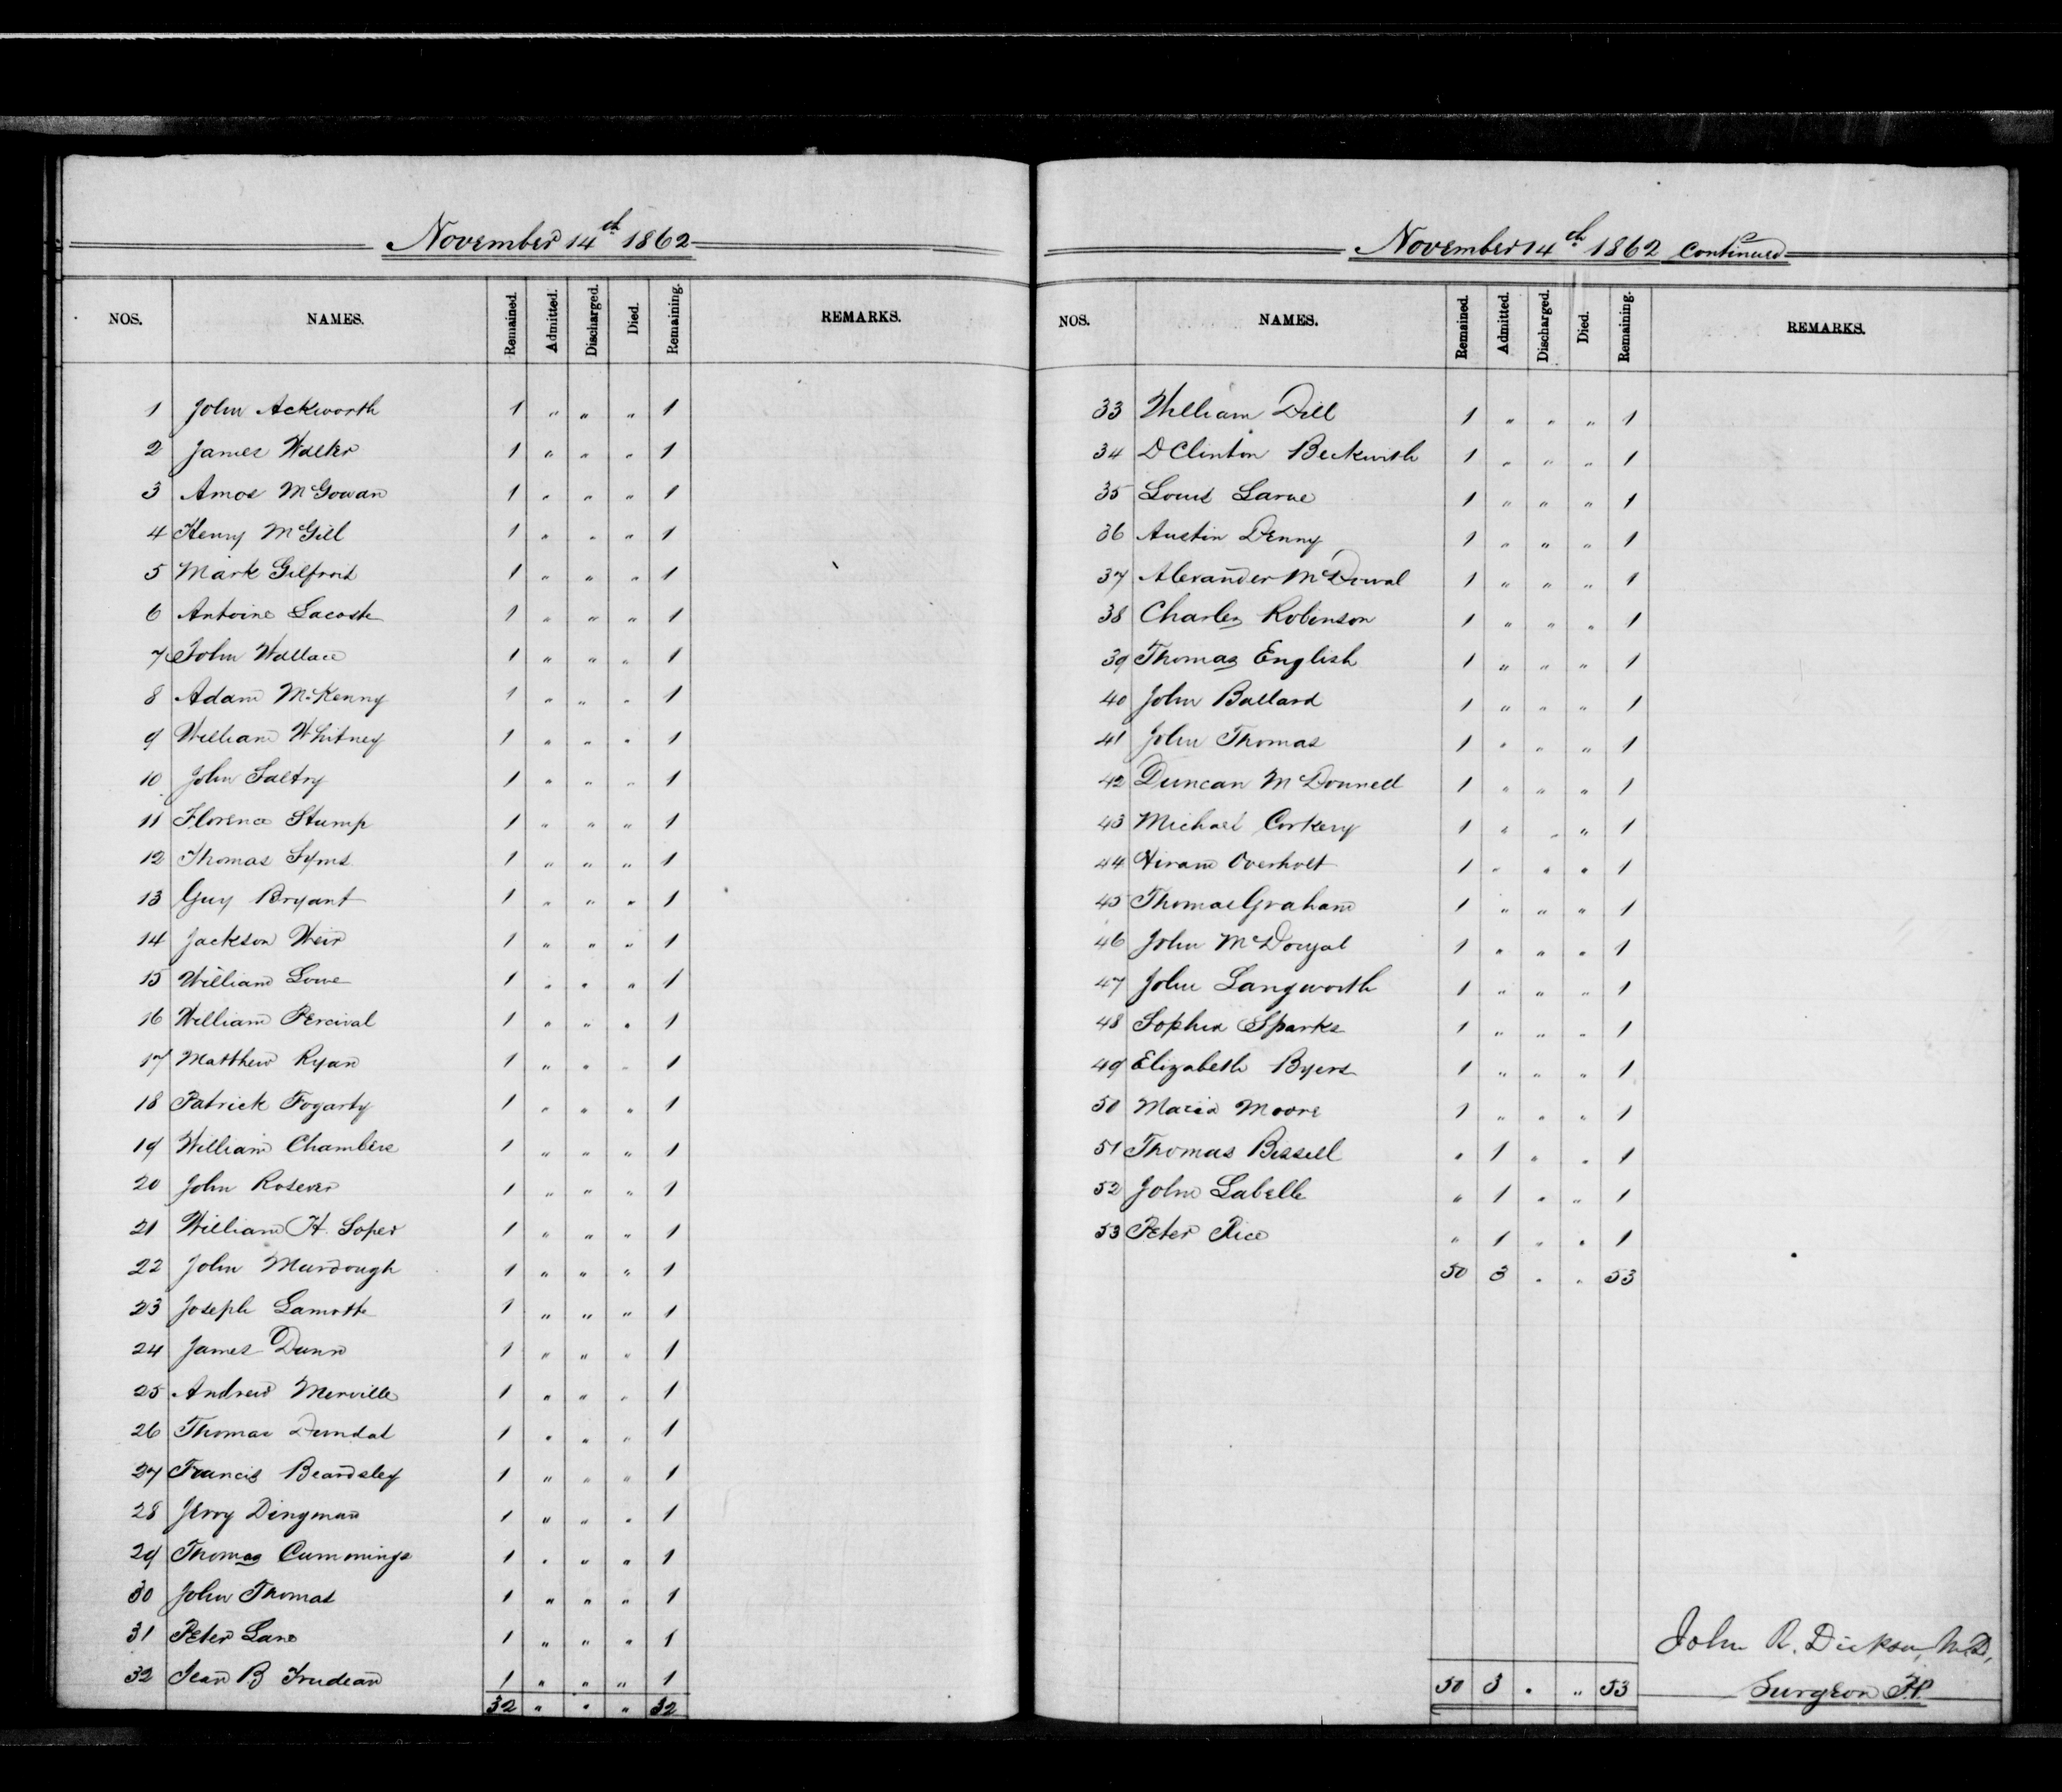 November 14th 1862
NOS. NAMES. Remained. Admitted. Discharged. Died. Remaining. REMARKS.
1 John Ackworth 1 " " " 1
2 James Walker 1 " " " 1
3 Amos McGowan 1 " " " 1
4 Henry McGill 1 " " " 1
5 Mark Gilfroid 1 " " " 1
6 Antoine Lacoste 1 " " " 1
7 John Wallace 1 " " " 1
8 Adam McKenny 1 " " " 1
9 William Whitney 1 " " " 1
10 John Saltry 1 " " " 1
11 Florence Stump 1 " " " 1
12 Thomas Syms 1 " " " 1
13 Guy Bryant 1 " " " 1
14 Jackson Weir 1 " " " 1
15 William Lowe 1 " " " 1
16 William Percival 1 " " " 1
17 Matthew Ryan 1 " " " 1
18 Patrick Fogarty 1 " " " 1
19 William Chambers 1 " " " 1
20 John Rosever 1 " " " 1
21 William H. Soper 1 " " " 1
22 John Murdough 1 " " " 1
23 Joseph Lamotte 1 " " " 1
24 James Dunn 1 " " " 1
25 Andrew Merville 1 " " " 1
26 Thomas Dundal 1 " " " 1
27 Francis Beardsley 1 " " " 1
28 Jerry Dingman 1 " " " 1
29 Thomas Cummings 1 " " " 1
30 John Thomas 1 " " " 1
31 Peter Lane 1 " " " 1
32 Jean B Trudeau 1 " " " 1
32 " " " 32
November 14th 1862 Continued
NOS. NAMES. Remained. Admitted. Discharged. Died. Remaining. REMARKS.
33 William Dill 1 " " " 1
34 D Clinton Beckwith 1 " " " 1
35 Louis Larue 1 " " " 1
36 Austin Denny 1 " " " 1
37 Alexander McDowal 1 " " " 1
38 Charles Robinson 1 " " " 1
39 Thomas English 1 " " " 1
40 John Ballard 1 " " " 1
41 John Thomas 1 " " " 1
42 Duncan McDonnell 1 " " " 1
43 Michael Corkery 1 " " " 1
44 Hiram Overholt 1 " " " 1
45 Thomas Graham 1 " " " 1
46 John McDougal 1 " " " 1
47 John Langworth 1 " " " 1
48 Sophia Sparks 1 " " " 1
49 Elizabeth Byers 1 " " " 1
50 Maria Moore 1 " " " 1
51 Thomas Bissell " 1 " " 1
52 John Labelle " 1 " " 1
53 Peter Rice " 1 " " 1
50 3 " " 53
John R. Dickson, M.D.,
50 3 " " 53 Surgeon